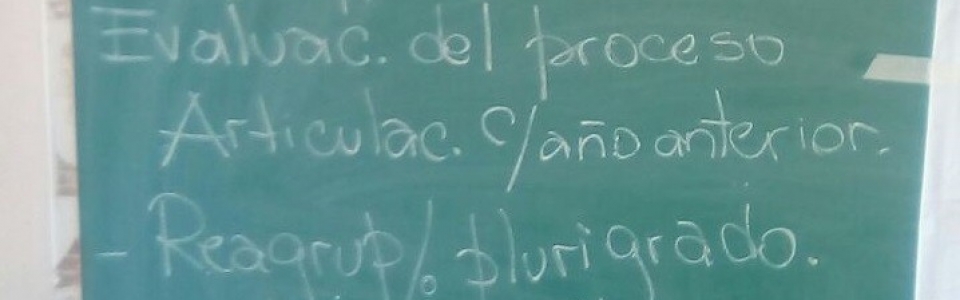 Evaluac. del proceso
Articulac. c/año anterior.
- Reagrup/. plurigrado.